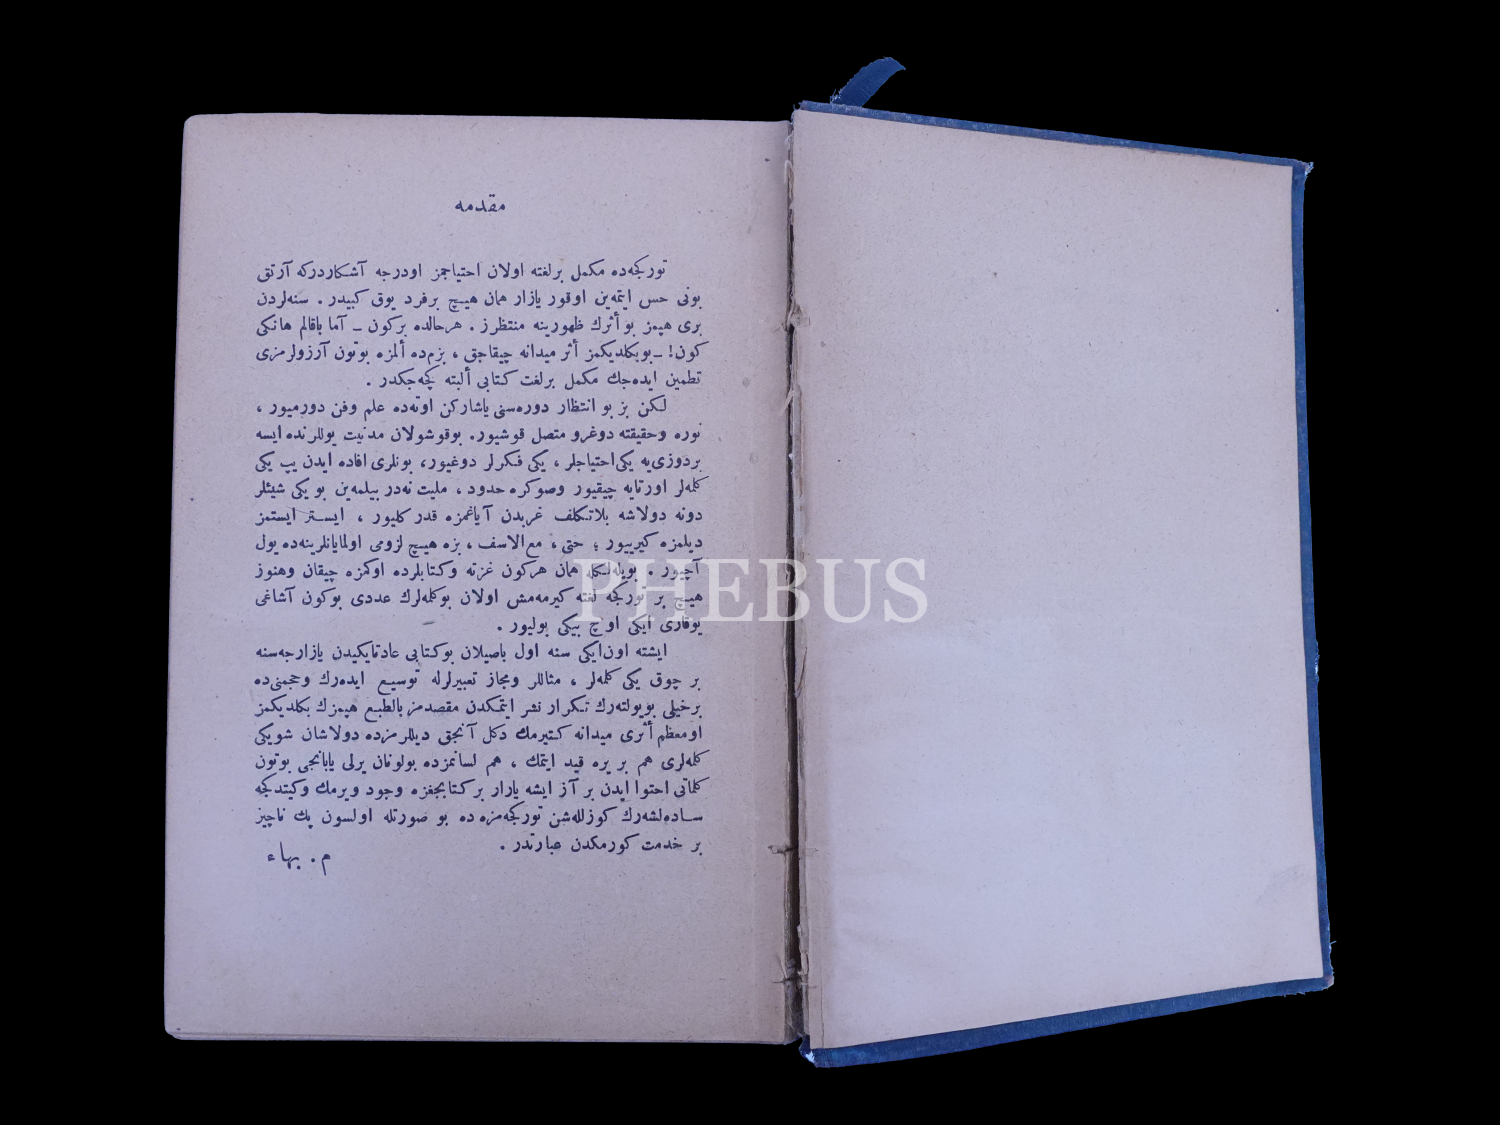 مقدمه
تورکجه‌ده مکمل بر لغته اولان احتیاجمز اودرجه آشکاردرکه آرتق
بونی حس ایتمه‌ین اوقور یازار همان هیچ برفرد یوق کبیدر . سنه‌لردن
بری هپمز بو أثرك ظهورینه منتظرز . هرحالده برکون ــ آما باقالم هانکی
کون! ــ بوبکلدیکمز أثر میدانه چیقاجق ، بزم‌ده ألمزه بوتون آرزولرمزی
تطمین ایده‌جك مکمل برلغت کتابی ألبته کچه‌جکدر .
لکن بز بو انتظار دوره‌سنی یاشارکن اوته‌ده علم وفن دورمیور ،
نوره وحقیقته دوغرو متصل قوشیور. بوقوشولان مدنیت یوللرنده ایسه
بردوزی‌یه یکی احتیاجلر ، یکی فکرلر دوغیور، بونلری افاده ایدن یپ یکی
کلمه‌لر اورتایه چیقیور وصوکره حدود ، ملیت نه‌در بیلمه‌ین بو یکی شیئلر
دونه دولاشه بلاتکلف غربدن آیاغمزه قدر کلیور ، ایستر ایستمز
دیلمزه کیرییور ؛ حتی ، مع‌الاسف ، بزه هیچ لزومی اولمایانلرینه‌ده یول
آچیور . بویله‌لکله همان هرکون غزته وکتابلرده اوکمزه چیقان وهنوز
هیچ بر تورکجه لغته کیرمه‌مش اولان بوکلمه‌لرك عددی بوکون آشاغی
یوقاری ایکی اوچ بیکی بولیور .
ایشته اون‌ایکی سنه اول باصیلان بوکتابی عادتایکیدن یازارجه‌سنه
بر چوق یکی کلمه‌لر ، مثاللر ومجاز تعبیرلرله توسیع ایده‌رك وحجمنی‌ده
برخیلی بویولته‌رك تکرار نشر ایتمکدن مقصدمز بالطبع هپمزك بکلدیکمز
اومعظم أثری میدانه کتیرمك دکل آنجق دیللرمزده دولاشان شویکی
کلمه‌لری هم بر یره قید ایتمك ، هم لسانمزده بولونان یرلی یابانجی بوتون
کلماتی احتوا ایدن بر آز ایشه یارار برکتابجغزه وجود ویرمك وکیتدکجه
ساده‌لشه‌رك کوزللشن تورکجه‌مزه‌ده بو صورتله اولسون پك ناچیز
بر خدمت کورمکدن عبارتدر .
م . بهاء
PHEBUS